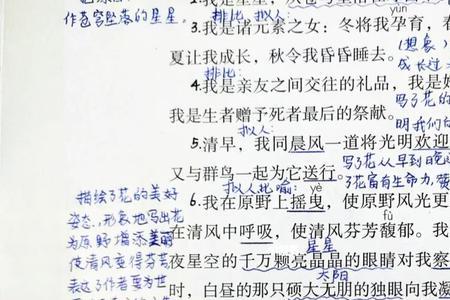 2.我是星星,从苍穹坠落
作苍穹坠落的星星。
排比、拟人:
yùn
3.我是诸元素之女:冬将我孕育,春
(想象)
夏让我成长,秋令我昏昏睡去。
成长过
排比:
4.我是亲友之间交往的礼品,我是婚
写了花的
我是生者赠予死者最后的祭献。
明我们的
拟人:
5.清早,我同晨风一道将光明欢迎
写花从早到晚
又与群鸟一起为它送行。
了花富有生命力,
拟人比喻: yè
描绘了花的美好
6.我在原野上摇曳,使原野风光更
姿态,形象地写出花
fù
在清风中呼吸,使清风芬芳馥郁。我
为原野增添美丽
星星
使清风变得芬芳
夜星空的千万颗亮晶晶的眼睛对我察
太阳
表达了作者至为世
时,白昼的那只硕大无朋的独眼向我凝